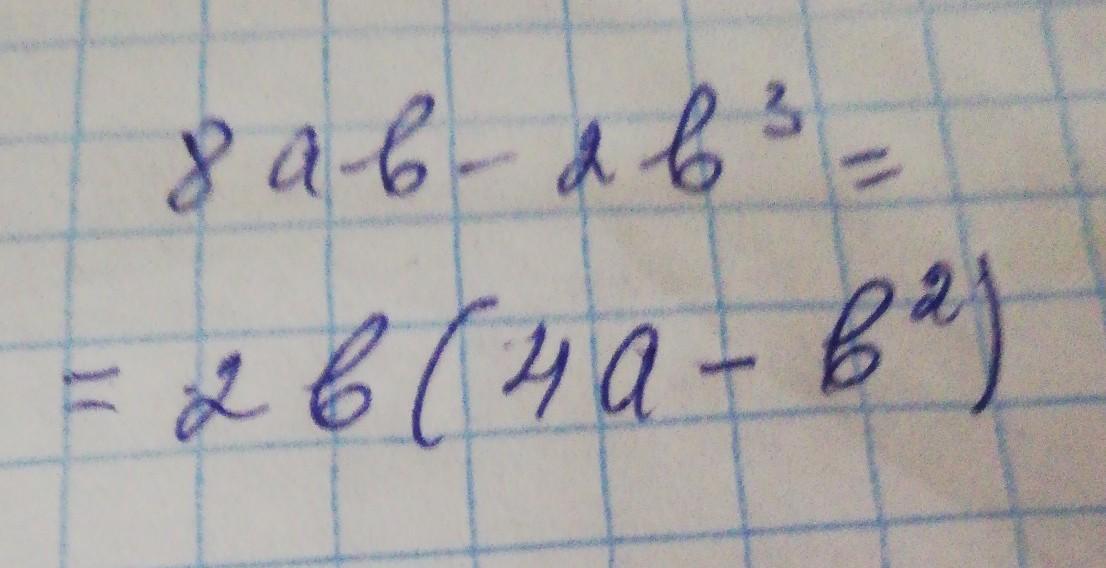 8ab - 2b³ =
= 2b(4a - b²)